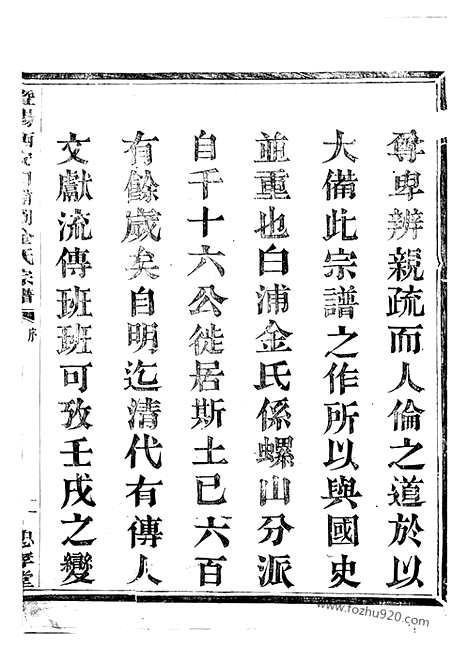 尊卑辨親疏而人倫之道於以
大備此宗譜之作所以與國史
並重也白浦金氏係螺山分派
自千十六公徙居斯土已六百
有餘歲矣自明迄清代有傳人
文獻流傳班班可攷壬戌之變
金氏宗譜
序
二
忠孝堂
www.fozhu920.com